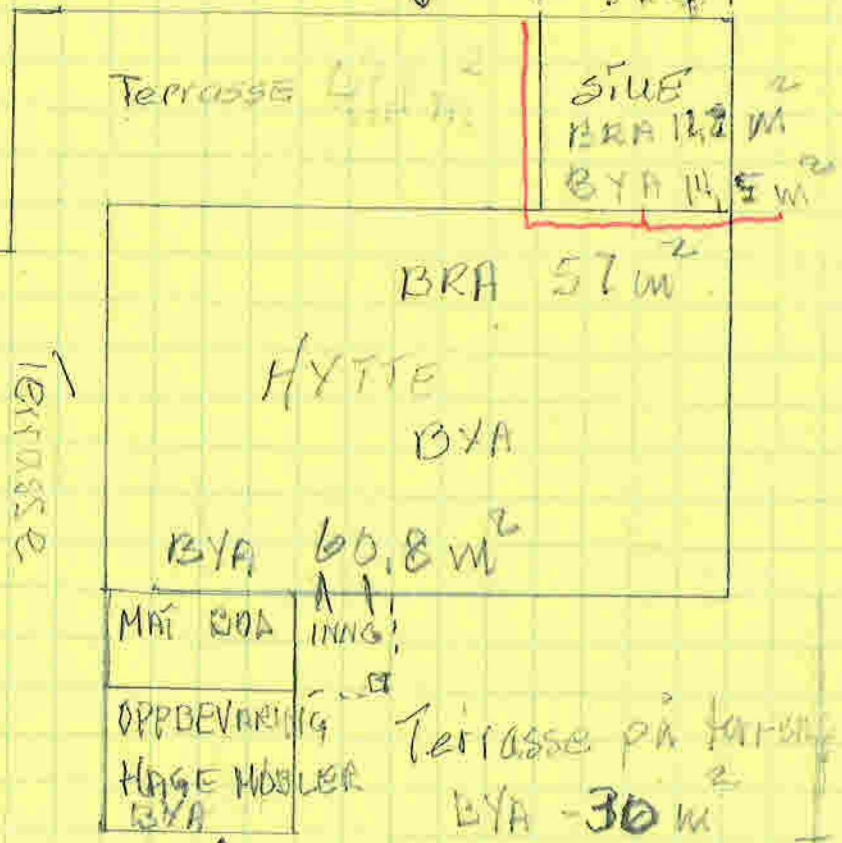 Terrasse
STUE
BRA 11,2 m²
BYA 14,5 m²
BRA 57 m²
HYTTE
BYA
BYA 60,8 m²
Terrasse
MAT BOD
INNG
OPPBEVARING
HAGE MØBLER
BYA
Terrasse på
BYA -30 m²